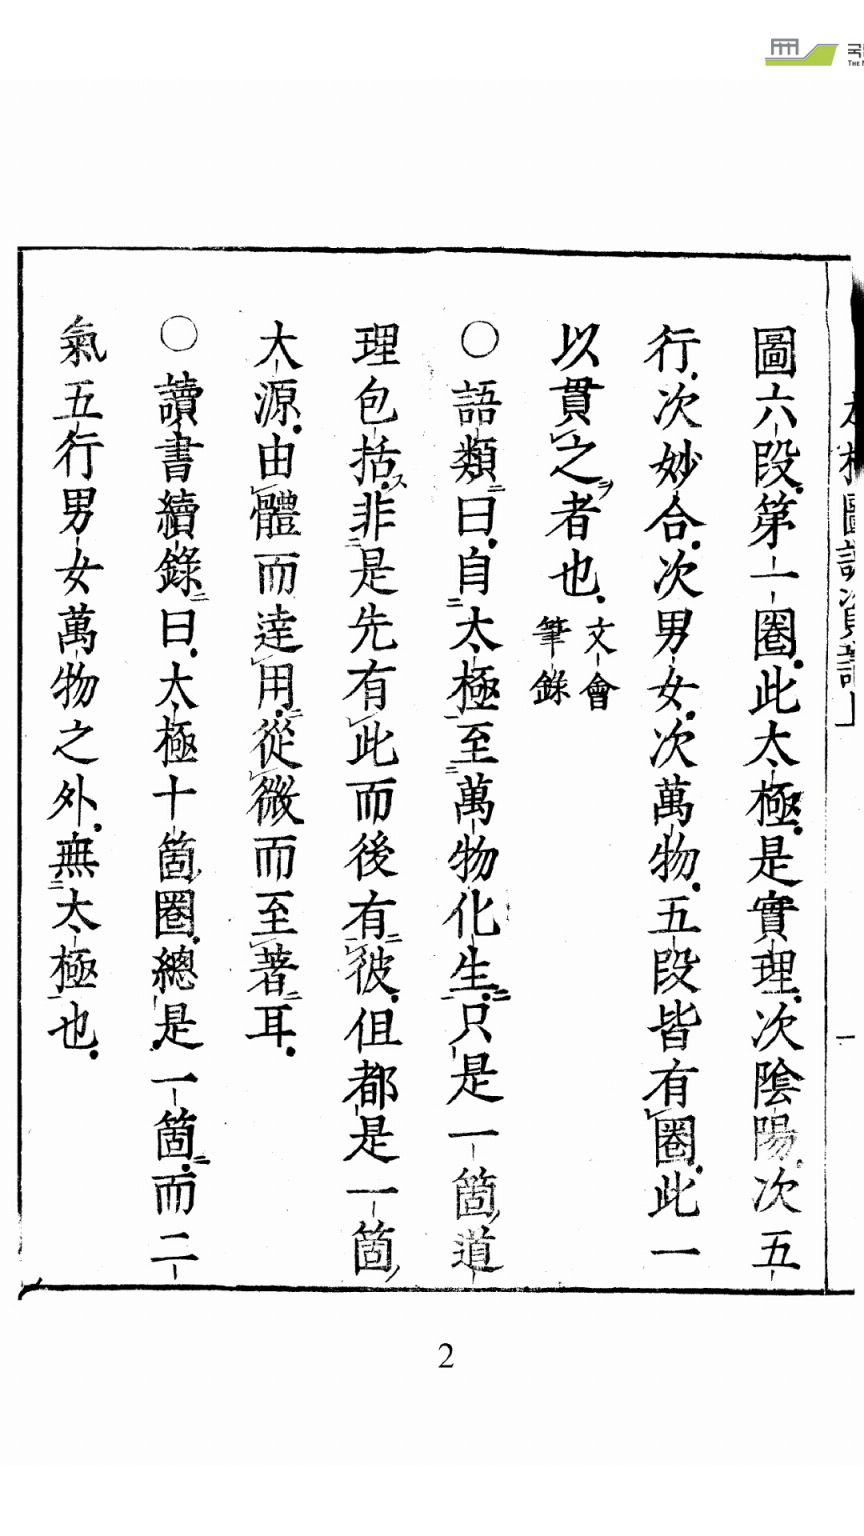 圖六段第一圈此太極是實理次陰陽次五
行次妙合次男女次萬物五段皆有圈此一
以貫之者也 文會
筆錄
〇語類曰自太極至萬物化生只是一箇道
理包括非是先有此而後有彼但都是一箇
大源由體而達用從微而至著耳
〇讀書續錄曰太極十箇圈總是一箇而二
氣五行男女萬物之外無太極也
2